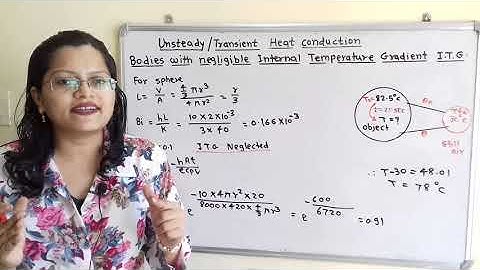 Unsteady/Transient Heat conduction
Bodies with negligible Internal Temperature Gradient I.T.G.
For sphere
L = V/A = 4/3 πr³ / 4πr² = r/3
Bi = hL/K = 10×2×10⁻³ / 3×40 = 0.166×10⁻³
0.1 ITG Neglected
-hAt / ρcV
-10×4πr²×20 / 8000×420×4/3πr³ = e -600/6720 = 0.91
82.5°c
T = ?
object
still
air
∴ T-30 = 48.01
T = 78°c